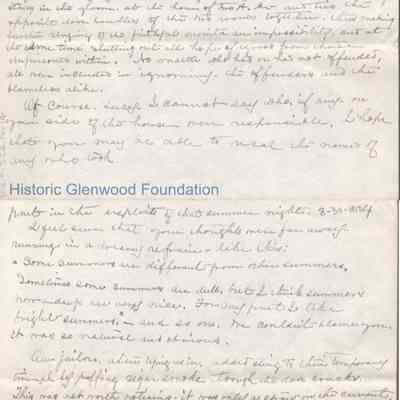 story in the gloom at the house of
opposite door handles of the two rooms together. thus making
further ringing of its faithful an impossibility and at
the same time, shutting out all hope of from
within. No matter who has or has not offended,
all are included in ignominy. the offenders and the
blameless alike.
Of course, I cannot say who, if any on
your side of the house were responsible. I hope
that you may be able to reveal the names of
any who took
Historic Glenwood Foundation
part in the exploits of that summer night.
I feel sure that your thoughts were far away
running in a dreamy refrain like this:
"Some summers are different from other summers.
Sometimes some summers are dull, but I think summers
nowadays are very nice. For my part I like
bright summers," and so on. We couldn't blame you.
It was so natural and obvious.
Our jailors, after tying us in, added sting to their temporary
triumph by puffing cigar smoke through the door cracks.
This was not worth noticing - it was